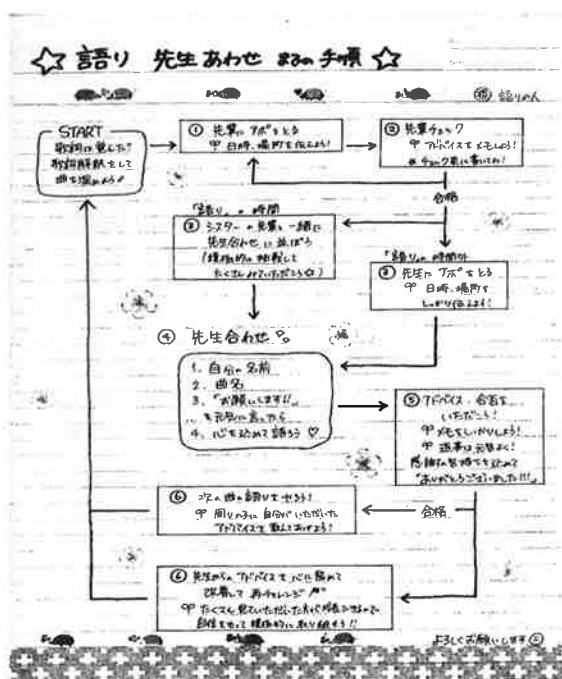 ☆語り 先生あわせ までの手順☆
語りの人
START
歌詞は覚した?
歌詞解釈をして
曲を深めよう
① 先輩にアポをとる
日時、場所を伝えよう!
② 先輩チェック
アドバイスをメモしよう!
※チェック表に書いてね!
合格
「語り」の時間
③ シスターの先輩と一緒に
先生合わせに並ぼう
(積極的に挑戦して
たくさんみていただこう☆)
「語り」の時間外
③ 先生にアポをとる
日時、場所を
しっかり伝えよう!
④ 先生合わせ
1. 自分の名前
2. 曲名
3. 「お願いします!!」
を元気に言ったら
4. 心を込めて語ろう♡
⑤ アドバイス・合否を
いただこう!
メモをしっかりしよう!
返事は元気よく!
感謝の気持ちを込めて
「ありがとうございました!!!」
合格
⑥ 次の曲の語りをしよう!
周りの子に自分がいただいた
アドバイスを
⑥ 先生からのアドバイスを心に留めて
改善して再チャレンジ
たくさん見ていただいた方が
自信をもって積極的に取り組もう!!
よろしくお願いします